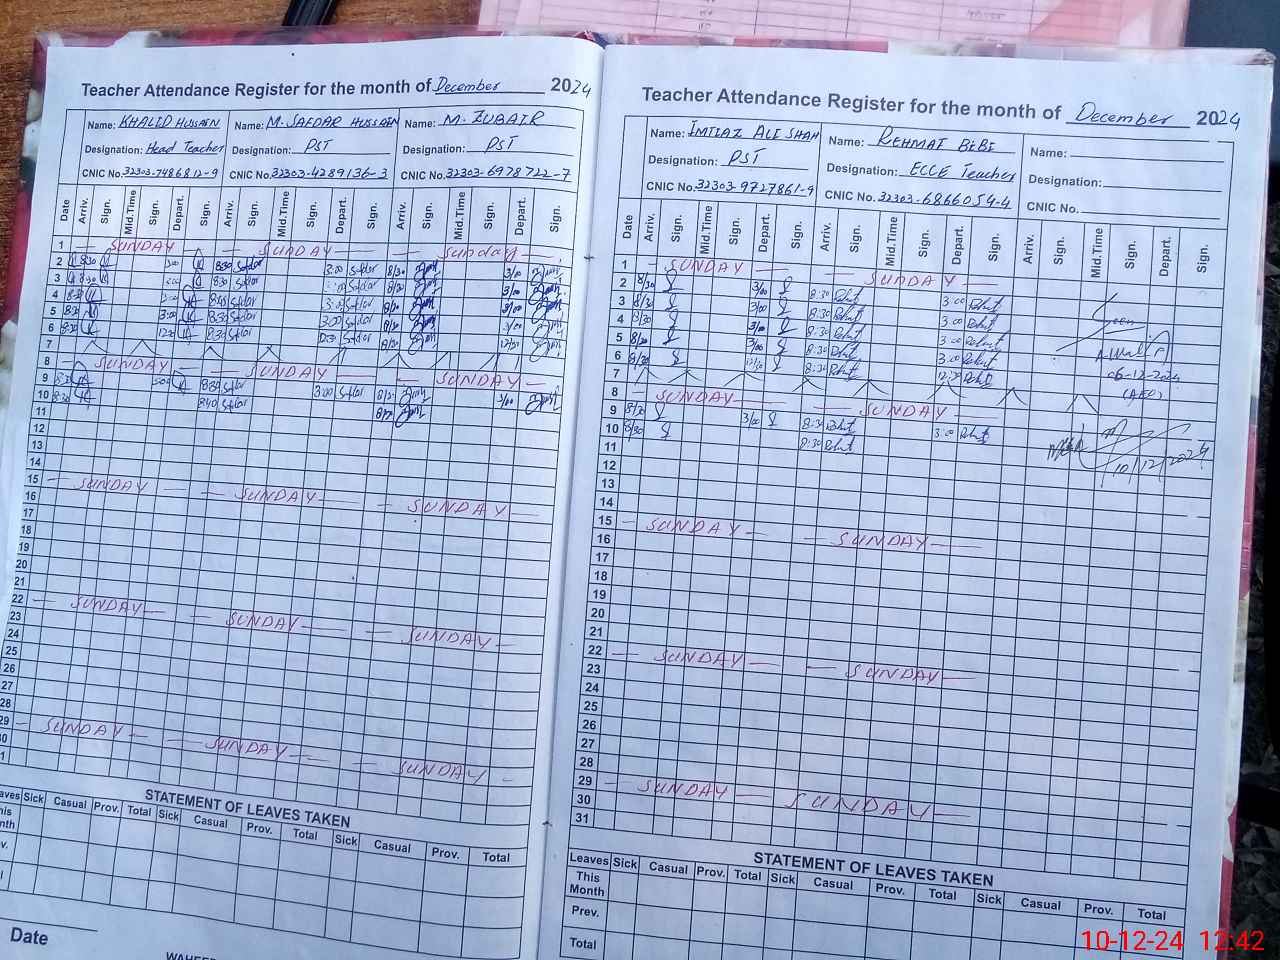 Teacher Attendance Register for the month of December 2024
Name: KHALID HUSSAIN Name: M. SAFDAR HUSSAIN Name: M. ZUBAIR
Designation: Head Teacher Designation: PST Designation: PST
CNIC No. 32303-7486812-9 CNIC No. 32303-4289136-3 CNIC No. 32303-6978722-7
Date Arriv. Sign. Mid.Time Sign. Depart. Sign. Arriv. Sign. Mid.Time Sign. Depart. Sign. Arriv. Sign. Mid.Time Sign. Depart. Sign.
1 SUNDAY SUNDAY Sunday
2 8:30 3:00 8:30 Safdar 3:00 Safdar 8/30 3/00
3 8:30 8:30 Safdar Safdar 8/30 3/00
4 8:30 3:00 8:30 Safdar 3:00 Safdar 8/30 3/00
5 8:30 3:00 8:30 Safdar 3:00 Safdar 8/30 3/00
6 8:30 12:30 8:30 Safdar 12:30 Safdar 8/30 12/30
7
8 SUNDAY SUNDAY SUNDAY
9 8:30 3:00 8:30 Safdar 3:00 Safdar 8/30 3/00
10 8:30 8:30 Safdar 8/30
11
12
13
14
15 SUNDAY SUNDAY SUNDAY
16
17
18
19
20
21
22 SUNDAY SUNDAY SUNDAY
23
24
25
26
27
28
29 SUNDAY SUNDAY SUNDAY
30
STATEMENT OF LEAVES TAKEN
Sick Casual Prov. Total Sick Casual Prov. Total Sick Casual Prov. Total
This
Date
Teacher Attendance Register for the month of December 2024
Name: IMTIAZ ALI SHAH Name: REHMAT BIBI Name:
Designation: PST Designation: ECCE Teacher Designation:
CNIC No. 32303-9727861-9 CNIC No. 32303-6866054-4 CNIC No.
Date Arriv. Sign. Mid.Time Sign. Depart. Sign. Arriv. Sign. Mid.Time Sign. Depart. Sign. Arriv. Sign. Mid.Time Sign. Depart. Sign.
1 SUNDAY SUNDAY
2 8/30 3/00 8:30 Rehmat 3:00 Rehmat
3 8/30 3/00 8:30 Rehmat 3:00 Rehmat
4 8/30 3/00 8:30 Rehmat 3:00 Rehmat
5 8/30 3/00 8:30 Rehmat 3:00 Rehmat
6 8/30 12/30 8:30 Rehmat 12:30 Rehmat
7 06-12-2024
8 SUNDAY SUNDAY (AEO)
9 8/30 3/00 8:30 Rehmat 3:00 Rehmat
10 8/30 8:30 Rehmat
11 10/12/2024
12
13
14
15 SUNDAY SUNDAY
16
17
18
19
20
21
22 SUNDAY SUNDAY
23
24
25
26
27
28
29 SUNDAY SUNDAY
30
31
STATEMENT OF LEAVES TAKEN
Leaves Sick Casual Prov. Total Sick Casual Prov. Total Sick Casual Prov. Total
This Month
Prev.
Total
10-12-24 12:42